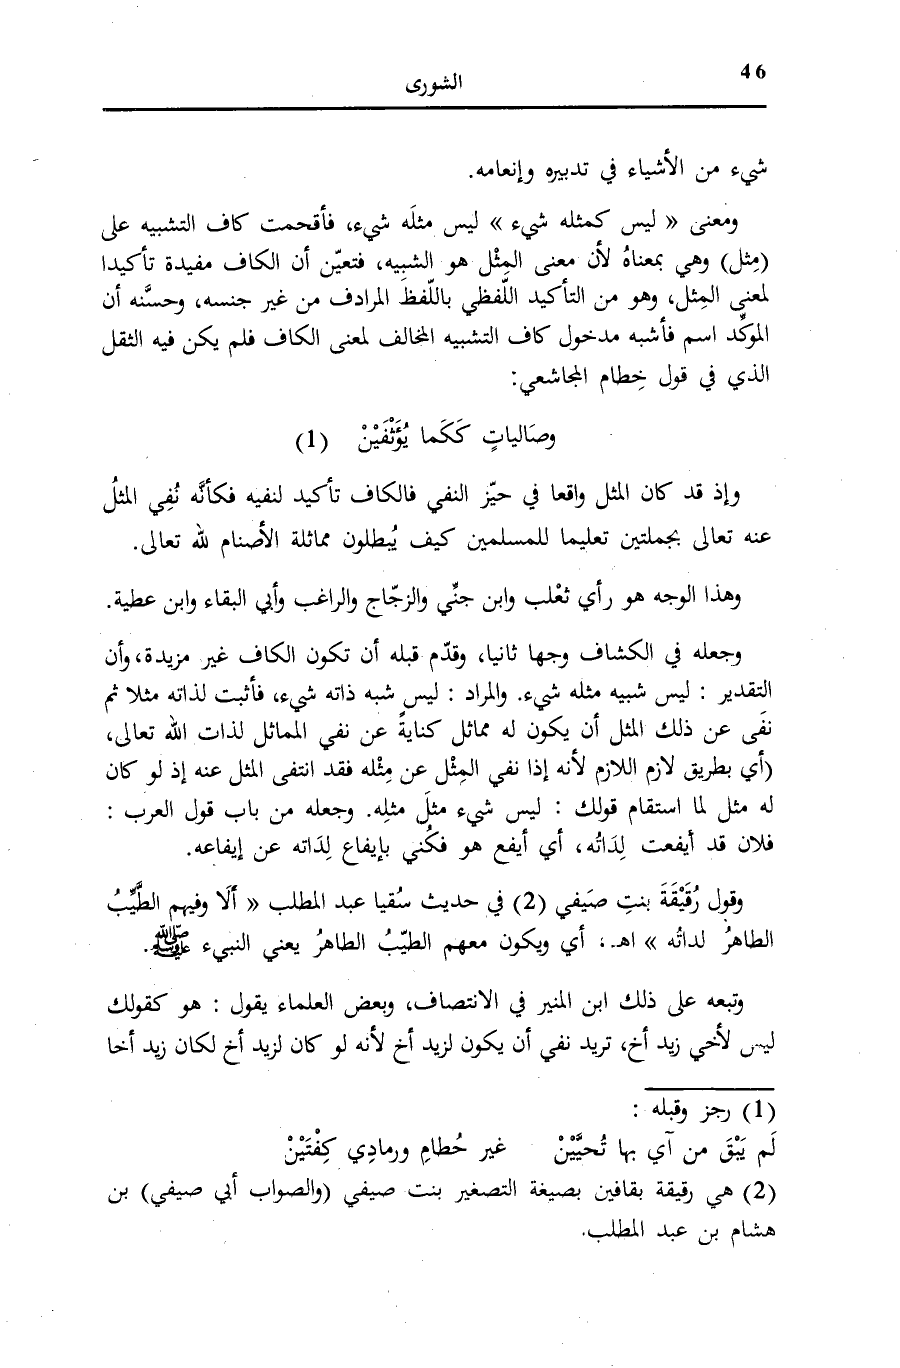 46
الشورى
شيء من الأشياء في تدبيره وإنعامه.
ومعنى « ليس كمثله شيء » ليس مثلَه شيء، فأقحمت كاف التشبيه على
(مِثل) وهي بمعناهُ لأن معنى المِثْل هو الشبيه، فتعيّن أن الكاف مفيدة تأكيدا
لمعنى المِثل، وهو من التأكيد اللّفظي باللّفظَ المرادف من غير جنسه، وحسَّنه أن
الموكِّد اسم فأشبه مدخول كاف التشبيه المخالف لمعنى الكاف فلم يكن فيه الثقل
الذي في قول خِطام المجاشعي:
وصَالياتٍ كَكَما يُؤَثْفَيْنْ (1)
وإذ قد كان المثل واقعا في حيّز النفي فالكاف تأكيد لنفيه فكأنَّه نُفِي المثلُ
عنه تعالى بجملتين تعليما للمسلمين كيف يُبطلون مماثلة الأصنام لله تعالى.
وهذا الوجه هو رأي ثعْلب وابن جنِّي والزجّاج والراغب وأبي البقاء وابن عطية.
وجعله في الكشاف وجها ثانيا، وقدّم قبله أن تكون الكاف غير مزيدة، وأن
التقدير : ليس شبيه مثله شيء. والمراد : ليس شبه ذاته شيء، فأثبت لذاته مثلا ثم
نفَى عن ذلك المثل أن يكون له مماثل كنايةً عن نفي المماثل لذات الله تعالى،
(أي بطريق لازم اللازم لأنه إذا نفي المِثْل عن مِثْله فقد انتفى المثل عنه إذ لو كان
له مثل لما استقام قولك : ليس شيء مثلَ مثلِه. وجعله من باب قول العرب :
فلان قد أيفعت لِدَاتُه، أي أيفع هو فكُني بإيفاع لِدَاته عن إيفاعه.
وقول رُقَيْقَةَ بنتِ صَيَفي (2) في حديث سُقيا عبد المطلب « ألَا وفيهم الطَّيِّبُ
الطاهرُ لداتُه » اهـ. ، أي ويكون معهم الطيّبُ الطاهرُ يعني النبيء ﷺ.
وتبعه على ذلك ابن المنير في الانتصاف، وبعض العلماء يقول : هو كقولك
ليس لأخي زيد أخ، تريد نفي أن يكون لزيد أخ لأنه لو كان لزيد أخ لكان زيد أخا
(1) رجز وقبله :
لَم يَبْقَ من آي بها تُحيَّيْنْ غير حُطامٍ ورمادِي كِفْتَيْنْ
(2) هي رقيقة بقافين بصيغة التصغير بنت صيفي (والصواب أبي صيفي) بن
هشام بن عبد المطلب.